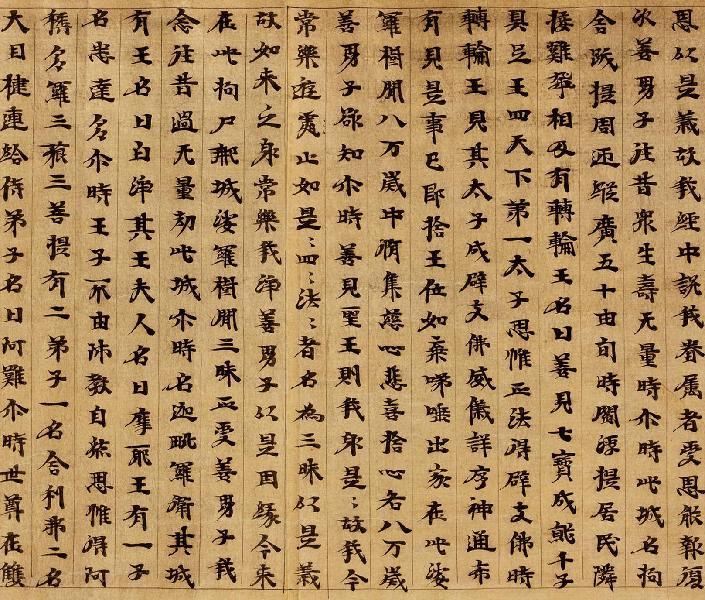 恩以是義故我經中說我眷屬者受恩能報復
次善男子往昔衆生壽无量時尒時此城名拘
舍跋提周迊縱廣五十由旬時閻浮提居民隣
接雞飛相及有轉輪王名曰善見七寶成就千子
具足王四天下第一太子思惟正法得辟支佛時
轉輪王見其太子成辟支佛威儀詳序神通希
有見是事已即捨王位如棄啼唾出家在此娑
羅樹間八万歲中脩集慈心悲喜捨心各八万歲
善男子欲知尒時善見聖王則我身是〻故我今
常樂遊處止如是〻四〻法〻者名為三昧以是義
故如來之身常樂我淨善男子以是因緣今來
在此拘尸那城娑羅樹間三昧正受善男子我
念往昔過无量劫此城尒時名迦毗羅衛其城
有王名曰白淨其王夫人名曰摩耶王有一子
名悉達多尒時王子不由師教自然思惟得阿
耨多羅三藐三菩提有二弟子一名舍利弗二名
大目揵連給侍弟子名曰阿難尒時世尊在雙